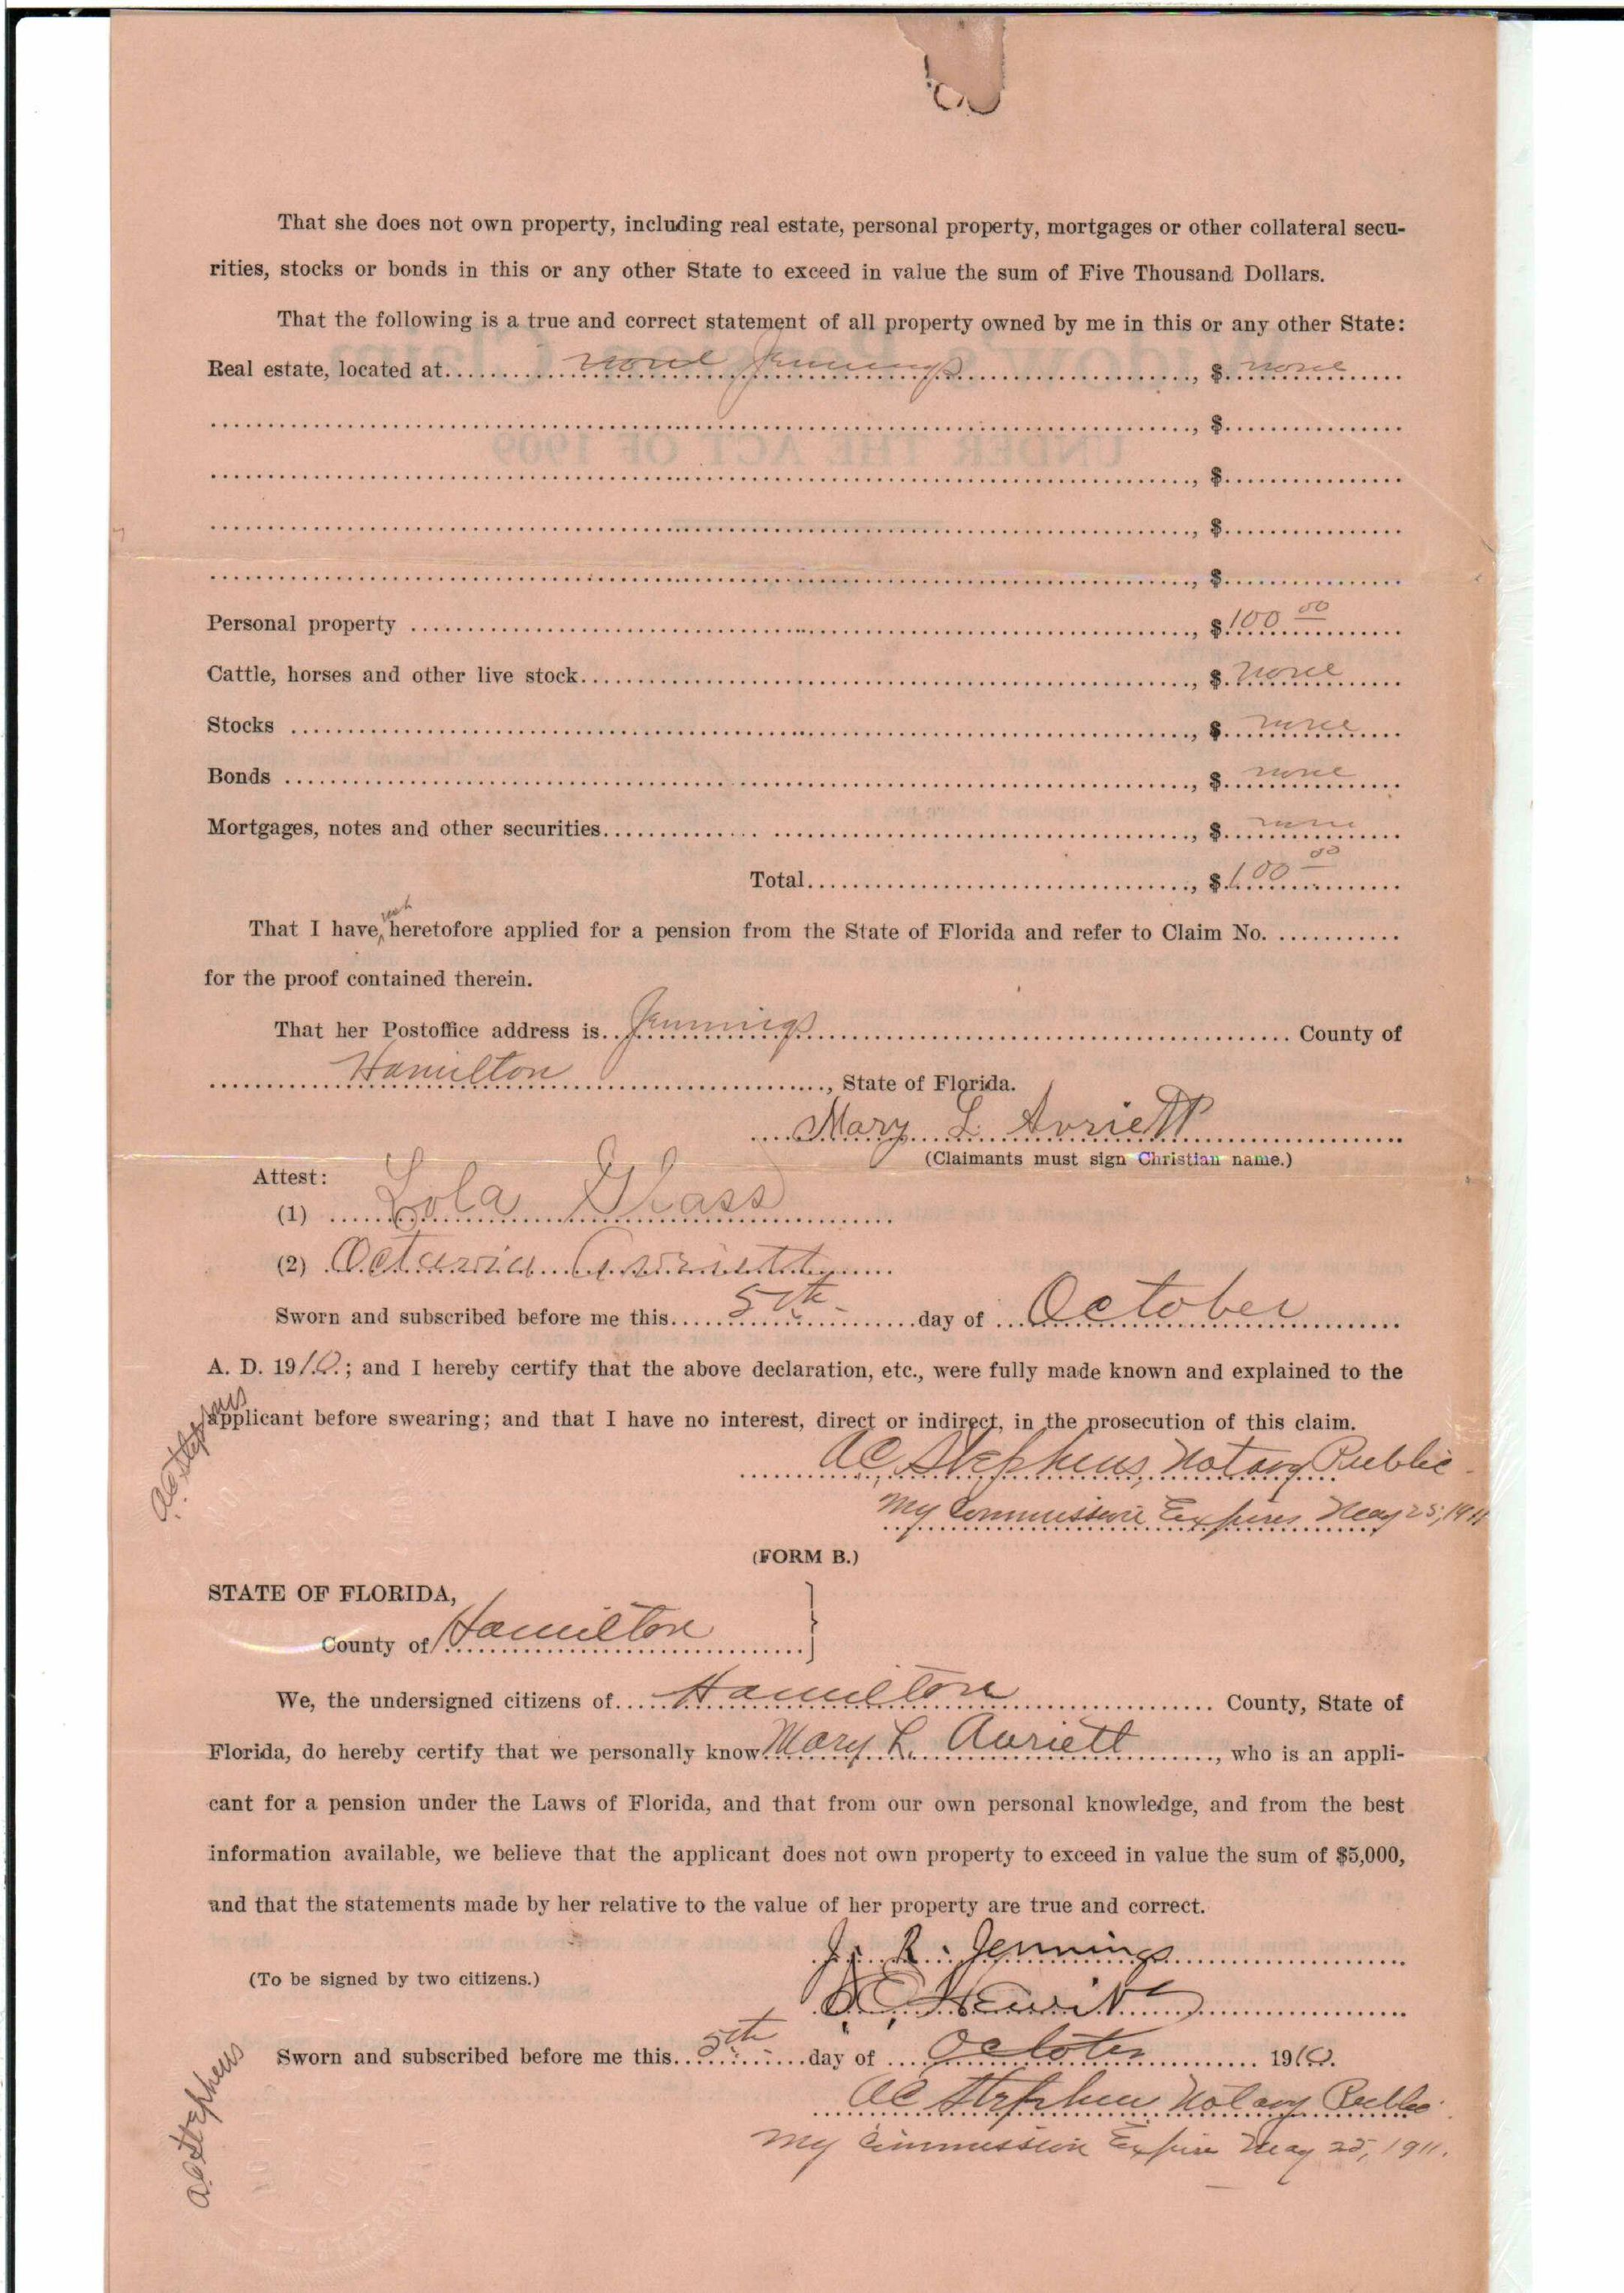 That she does not own property, including real estate, personal property, mortgages or other collateral secu-
rities, stocks or bonds in this or any other State to exceed in value the sum of Five Thousand Dollars.
That the following is a true and correct statement of all property owned by me in this or any other State:
Real estate, located at none Jennings, $ none
, $
, $
, $
, $
Personal property, $ 100 00
Cattle, horses and other live stock, $ none
Stocks, $ none
Bonds, $ none
Mortgages, notes and other securities, $ none
Total, $ 100 00
That I have, heretofore applied for a pension from the State of Florida and refer to Claim No.
for the proof contained therein.
That her Postoffice address is Jennings County of
Hamilton, State of Florida.
Mary L Avriett
(Claimants must sign Christian name.)
Attest:
(1) Lola Glass
(2) Octavia Avriett
Sworn and subscribed before me this 5th day of October
A. D. 1910; and I hereby certify that the above declaration, etc., were fully made known and explained to the
applicant before swearing; and that I have no interest, direct or indirect, in the prosecution of this claim.
AC Stephens
AC Stephens, Notary Public
My Commission Expires May 25, 1911
(FORM B.)
STATE OF FLORIDA,
County of Hamilton
We, the undersigned citizens of Hamilton County, State of
Florida, do hereby certify that we personally know Mary L. Avriett, who is an appli-
cant for a pension under the Laws of Florida, and that from our own personal knowledge, and from the best
information available, we believe that the applicant does not own property to exceed in value the sum of $5,000,
and that the statements made by her relative to the value of her property are true and correct.
J. R. Jennings
(To be signed by two citizens.)
Sworn and subscribed before me this 5th day of October 1910.
AC Stephens
AC Stephens Notary Public
My Commission Expire May 25, 1911.
UNDER THE ACT OF 1909